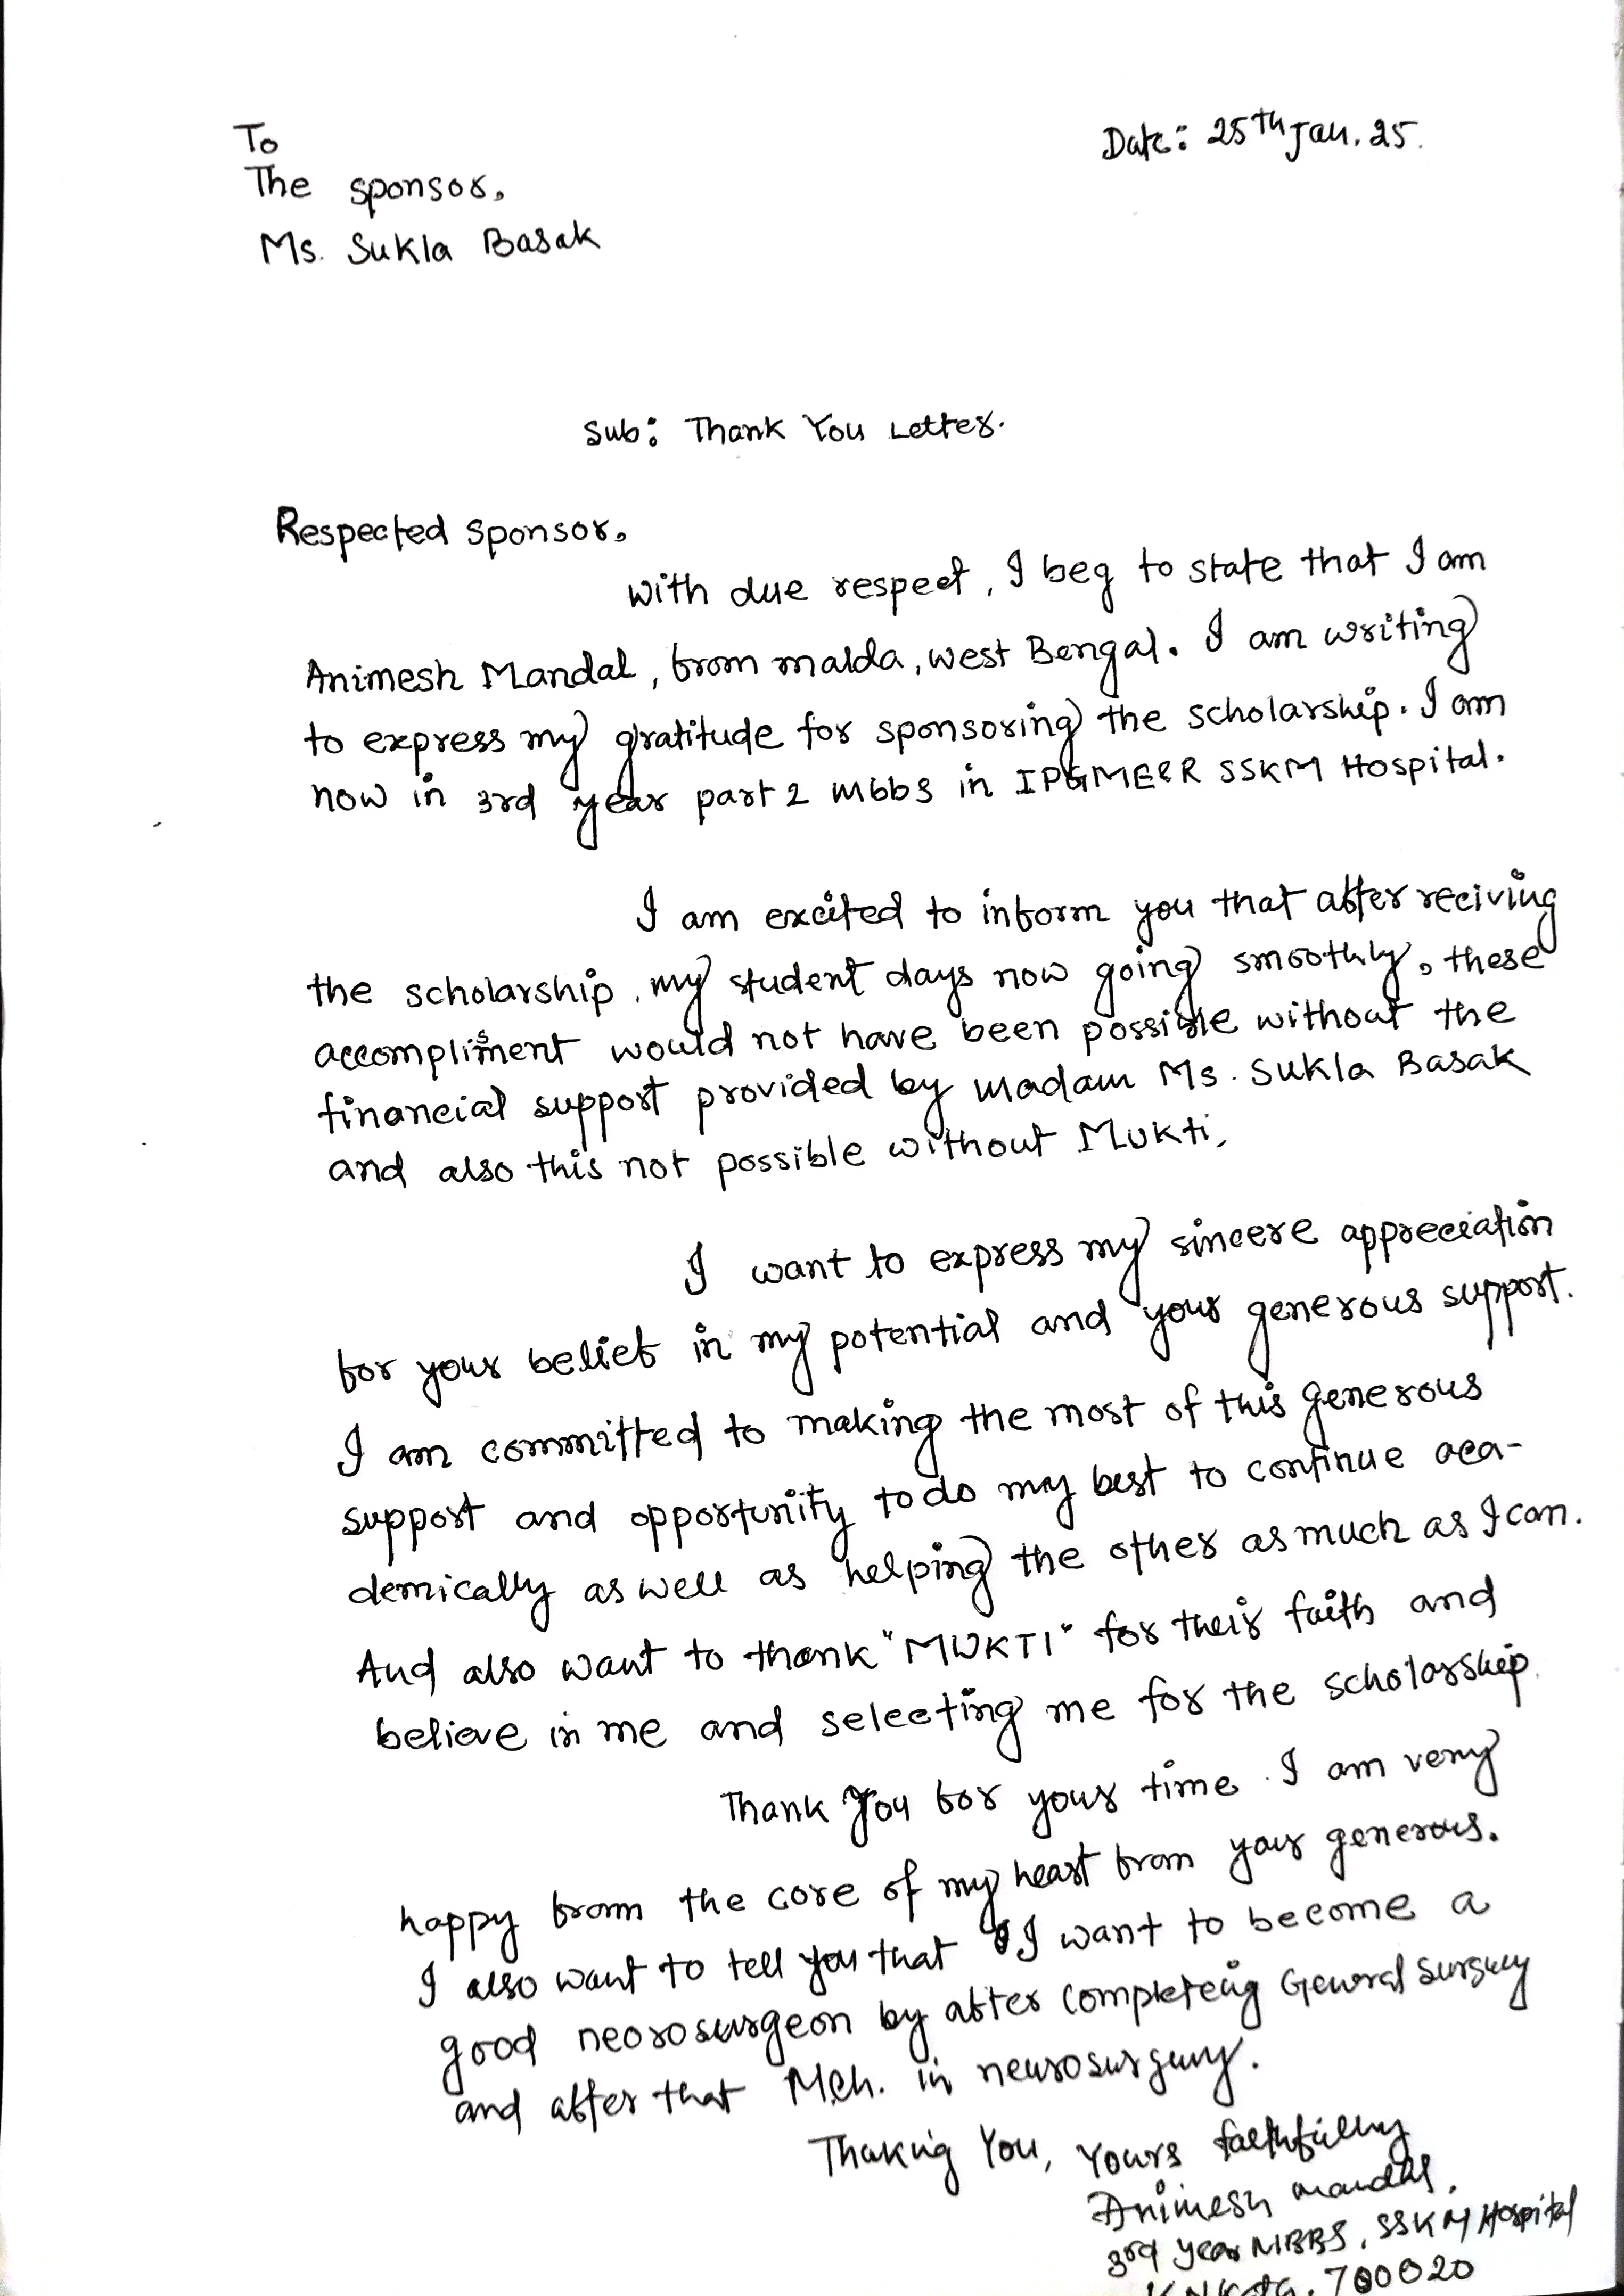 To
Date: 25th Jan. 25.
The sponsor,
Ms. Sukla Basak
Sub: Thank You Letter.
Respected sponsor,
with due respect, I beg to state that I am
Animesh Mandal, from malda, west Bengal. I am writing
to express my gratitude for sponsoring the scholarship. I am
now in 3rd year part 2 mbbs in IPGME&R SSKM Hospital.
I am excited to inform you that after reciving
the scholarship, my student days now going smoothly, these
accompliment would not have been possible without the
financial support provided by madam Ms. Sukla Basak
and also this not possible without Mukti,
I want to express my sincere appreciation
for your belief in my potential and your generous support.
I am committed to making the most of this generous
support and opportunity to do my best to continue aca-
demically as well as helping the other as much as I can.
And also want to thank "MUKTI" for their faith and
believe in me and selecting me for the scholarship.
Thank You for your time. I am very
happy from the core of my heart from your generous.
I also want to tell you that I want to become a
good neorosurgeon by after completeing General surgery
and after that M.ch. in neurosurgery.
Thaking You, Yours faithfully
Animesh mandal,
3rd year MBBS, SSKM Hospital
700020